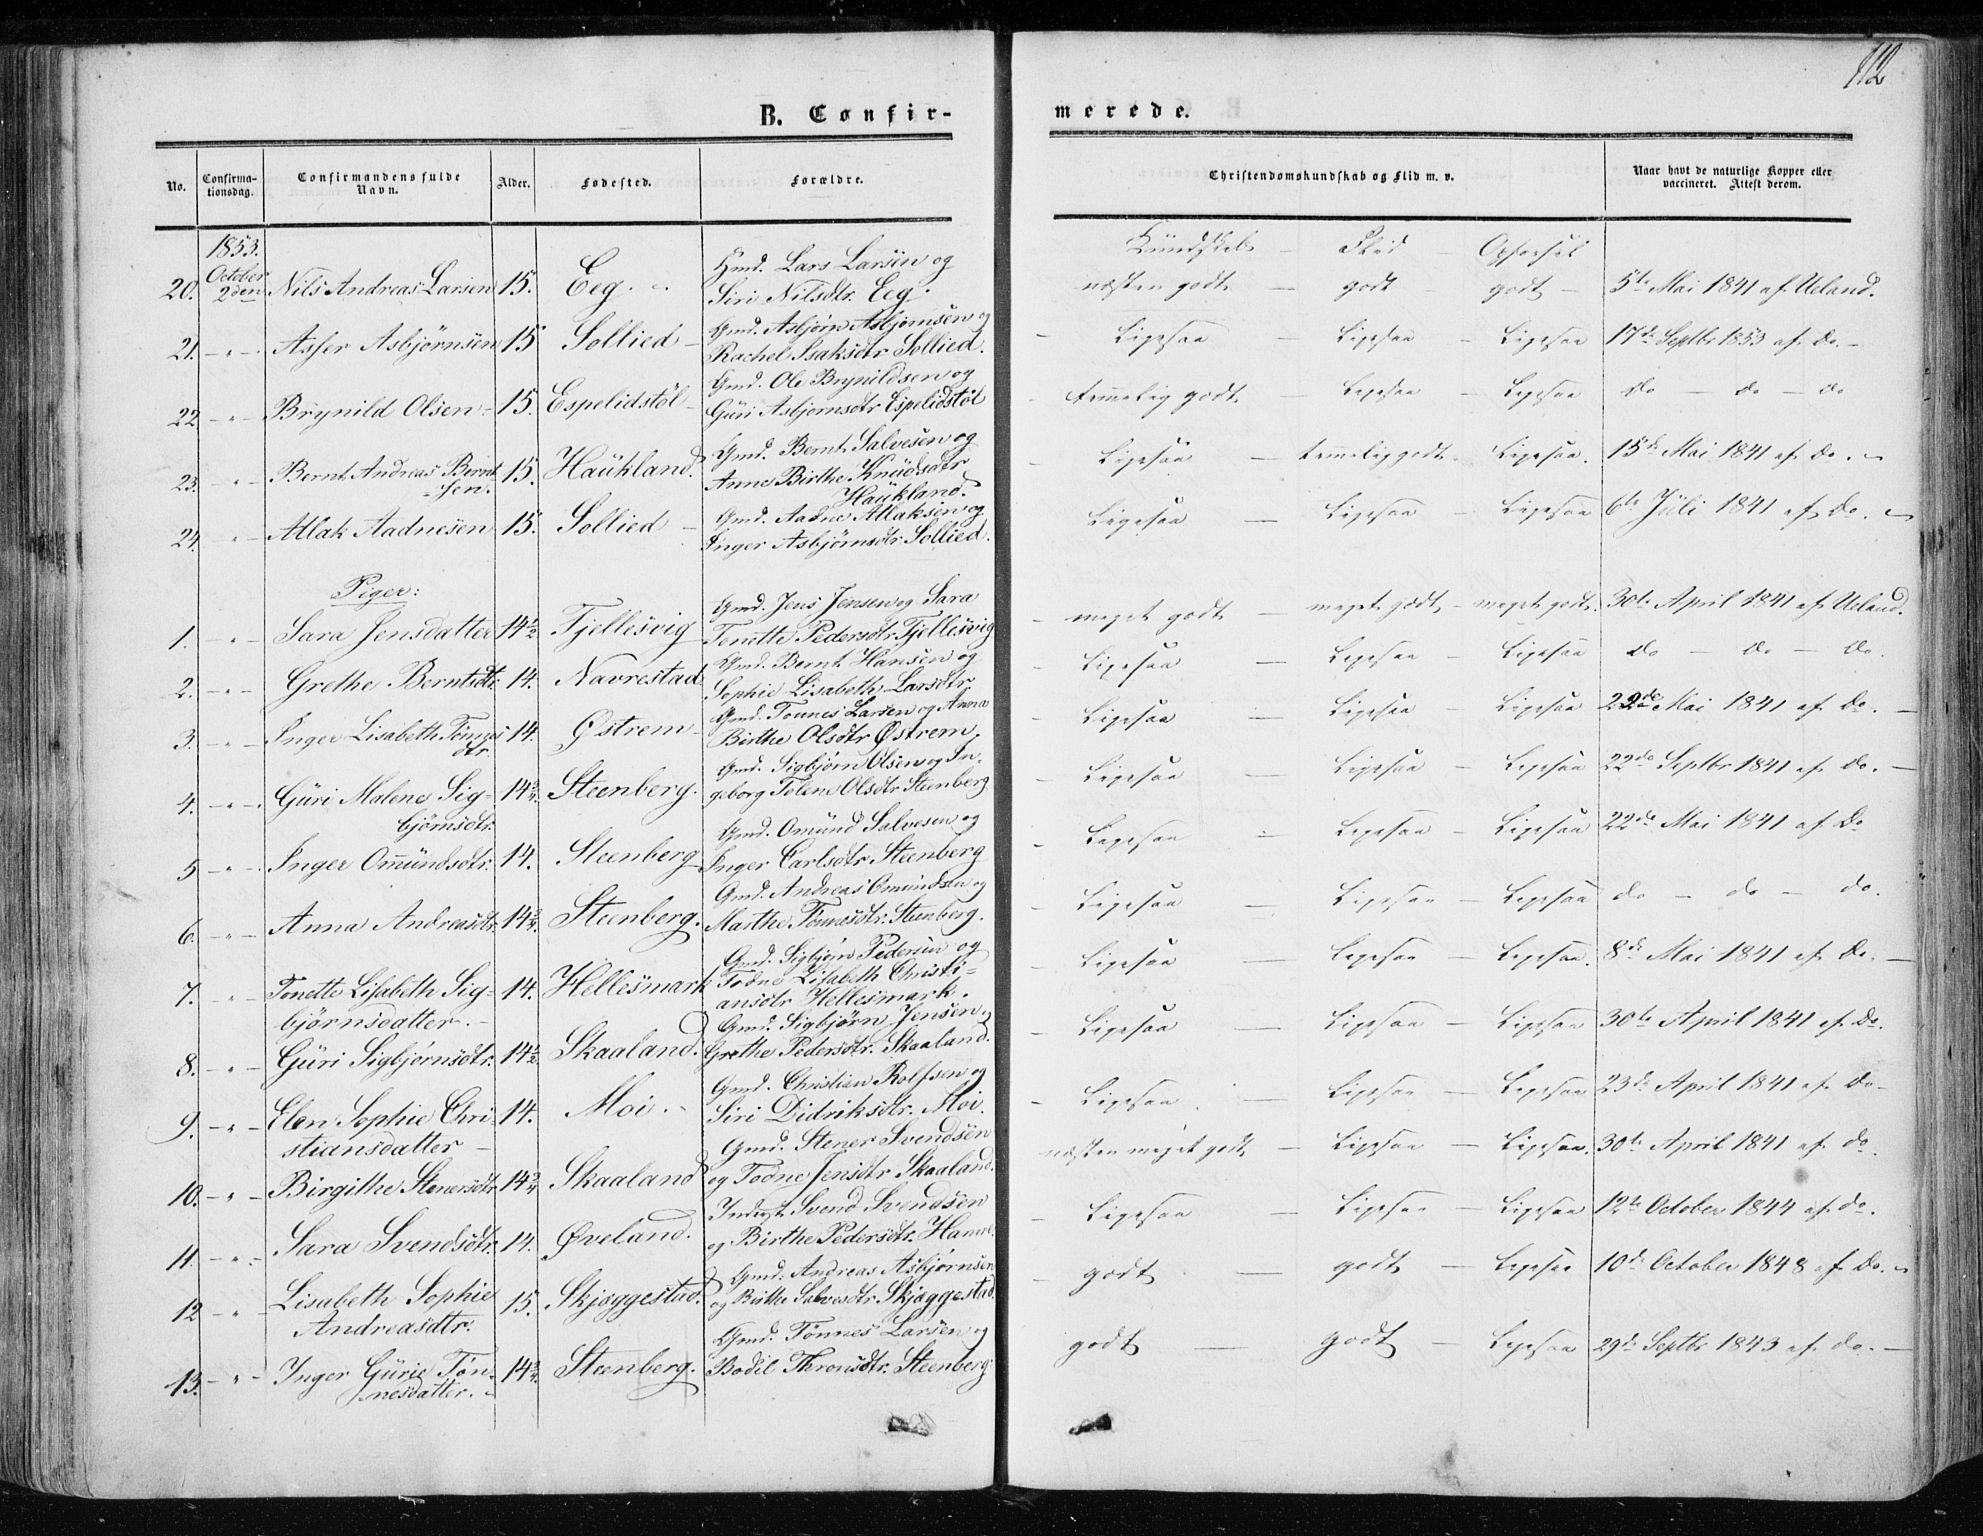 112
B. Confir-
merede.
No.
Confirma-
tionsdag.
Confirmandens fulde
Navn.
Alder.
Fødested.
Forældre.
Christendomskundskab og Flid m. v.
Naar havt de naturlige Kopper eller
vaccineret. Attest derom.
1853.
Kundskab — Flid — Opførsel
Gmd. Lars Larsen og
20. October 2den Nils Andreas Larsen 15. Eeg. Siri Nilsdtr. Eeg. næsten godt — godt — godt — 5te Mai 1841 af Ueland.
Gmd. Asbjørn Asbjørnsen og
21. — " — Asser Asbjørnsen 15 Sollied — Rachel Isaksdtr Sollied. — Ligesaa — Ligesaa — Ligesaa 17de Septbr 1853 af do. —
Gmd. Ole Brynildsen og
22 — " — Brynild Olsen — 15. Espelidstøl — Guri Asbjørnsdtr Espelidstøl — temmelig godt — Ligesaa — Ligesaa do — do — do
Gmd. Bernt Salvesen og
23. — " — Bernt Andreas Bernt- 15. Haukland. Anne Birthe Knudsdtr — Ligesaa — temmelig godt — Ligesaa. 15de Mai 1841 af do. —
sen. Haukland.
Gmd. Aadne Atlaksen og
24. — " — Atlak Aadnesen 15. Sollied — Inger Asbjørnsdtr Sollied. Ligesaa — Ligesaa — Ligesaa 6te Juli 1841 af do. —
Piger:
Gmd. Jens Jensen og Sara
1. " — Sara Jensdatter 14½ Fjellesvig Tonette Pedersdtr Fjellesvig — meget godt — meget godt — meget godt. 30te April 1841 af Ueland.
Gmd. Bernt Hansen og
2. — " — Grethe Berntsdtr. 14. Navrestad. Sophie Lisabeth Larsdtr — Ligesaa — Ligesaa — Ligesaa do — do — do.
Gmd. Tonnes Larsen og Anna
3. — " — Inger Lisabeth Tønnes- 14. Østrem — Birthe Olsdtr Østrem. — Ligesaa — Ligesaa — Ligesaa 22de Mai 1841 af do. —
dtr.
Gmd. Sigbjørn Olsen og In-
4. — " — Guri Malene Sig- 14¾ Steenberg. geborg Tolene Olsdtr Steenberg — Ligesaa — Ligesaa — Ligesaa 22de Septbr 1841 af do. —
bjørnsdtr.
Gmd. Omund Salvesen og
5 — " — Inger Ommundsdtr. 14. Steenberg — Inger Carlsdtr Steenberg — Ligesaa — Ligesaa — Ligesaa 22de Mai 1841 af do
Gmd. Andreas Omundsen og
6. — " — Anna Andreasdtr. 14¾. Steenberg. Marthe Tønnesdtr. Steenberg. — Ligesaa — Ligesaa — Ligesaa do — do — do.
Gmd. Sigbjørn Pedersen og
7. — " — Tonette Lisabeth Sig- 14. Hellesmark Todne Lisabeth Christi- — Ligesaa — Ligesaa — Ligesaa. 8de Mai 1841 af do. —
bjørnsdatter. — ansdtr Hellesmark.
Gmd. Sigbjørn Jensen og
8. — " — Guri Sigbjørnsdtr. 14½ Skaaland. Grethe Pedersdtr. Skaaland. — Ligesaa — Ligesaa — Ligesaa 30te April 1841 af do.
Gmd. Christian Rolfsen og
9. — " — Elen Sophie Chri- 14. Moi. Siri Didriksdtr. Moi. — Ligesaa — Ligesaa — Ligesaa 23de April 1841 af do —
stiansdatter —
Gmd. Stener Svendsen
10. — " — Birgithe Stenersdtr 14¾ Skaaland og Todne Jensdtr Skaaland. næsten meget godt — Ligesaa — Ligesaa. 30te April 1841 af do
Inderst Svend Svendsen
11. — " — Sara Svendsdtr. 14. Øveland. og Birthe Pedersdtr. Hamre. — Ligesaa — Ligesaa — Ligesaa 12te October 1844 af do.
Gmd. Andreas Asbjørnsen
12 — " — Lisabeth Sophie 15. Skjæggestad. og Birthe Salvesdtr. Skjæggestad. — godt — godt — Ligesaa 10de October 1848 af do. —
Andreasdtr.
Gmd. Tønnes Larsen og
13. — " — Inger Gurie Tøn- 14¾. Steenberg. Bodil Thronsdtr. Steenberg. godt — godt — Ligesaa 29de Septbr 1843 af do. —
nesdatter. —